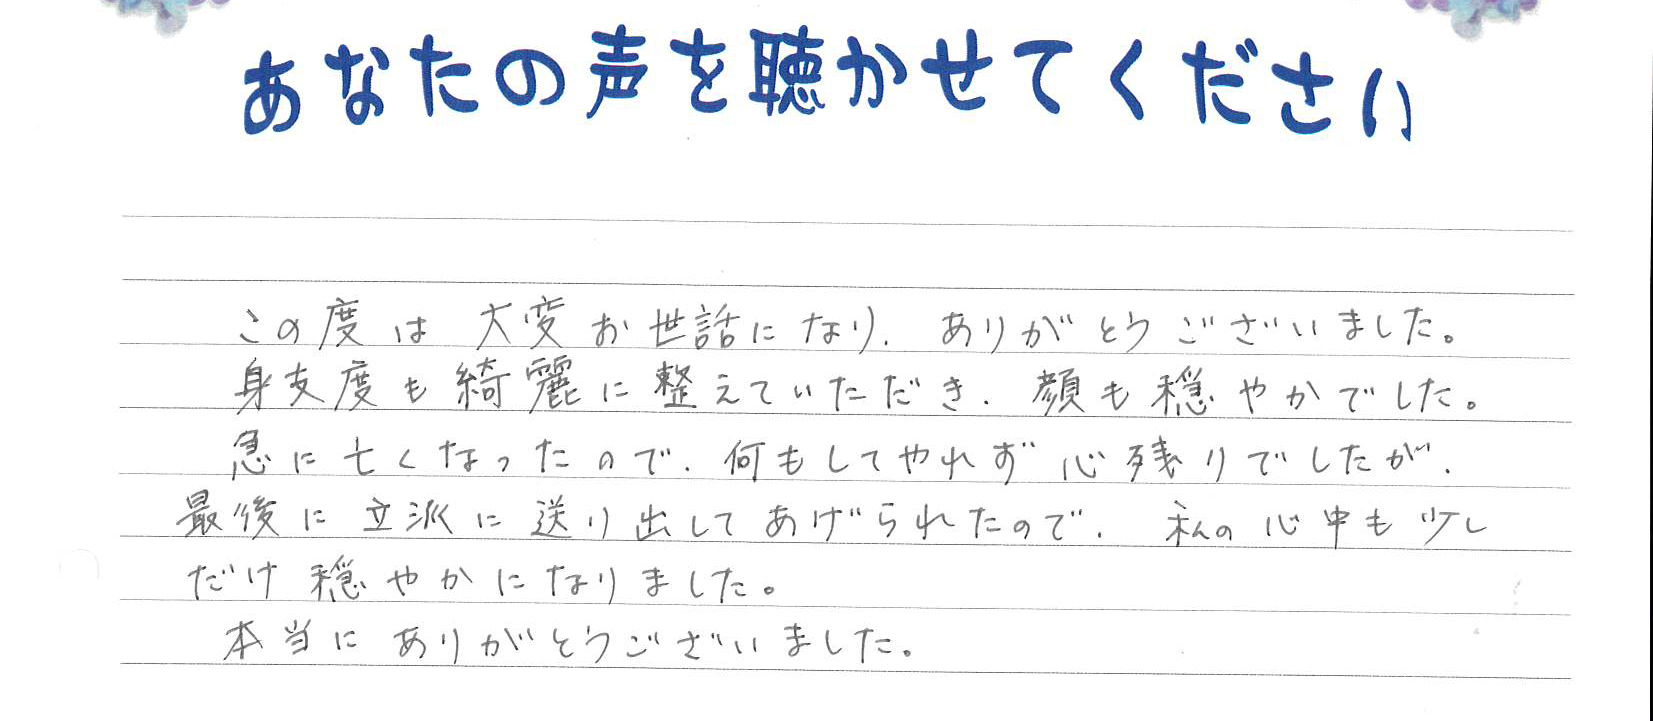 あなたの声を聴かせてください
この度は大変お世話になり、ありがとうございました。
身支度も綺麗に整えていただき、顔も穏やかでした。
急に亡くなったので、何もしてやれず心残りでしたが、
最後に立派に送り出してあげられたので、私の心中も少し
だけ穏やかになりました。
本当にありがとうございました。